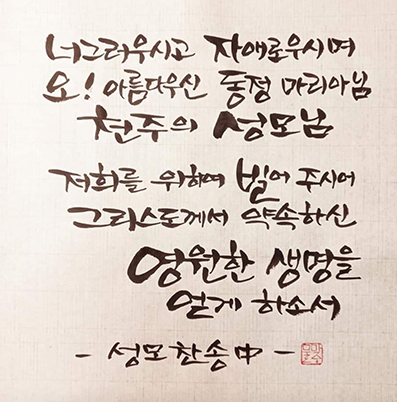 너그러우시고 자애로우시며
오! 아름다우신 동정 마리아님
천주의 성모님
저희를 위하여 빌어 주시어
그리스도께서 약속하신
영원한 생명을
얻게 하소서
- 성모찬송 中 -